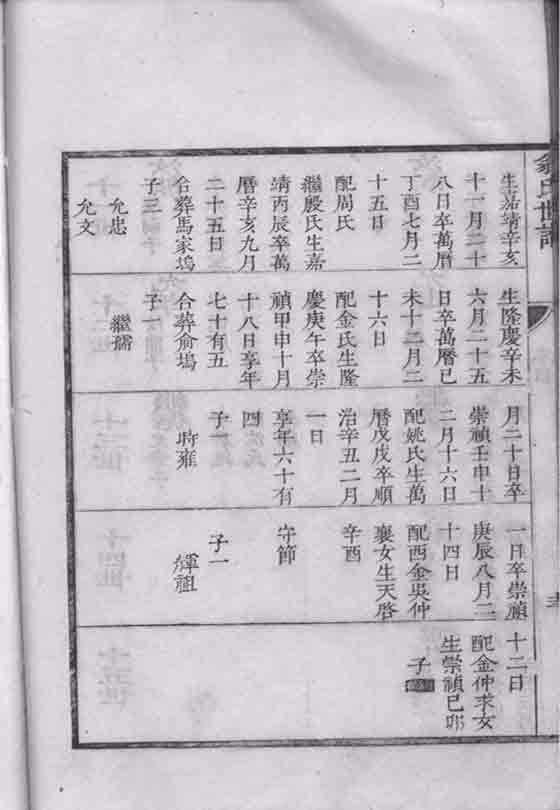 翁氏世譜
生嘉靖辛亥
十一月二十
八日卒萬曆
丁酉七月二
十五日
配周氏
繼殷氏生嘉
靖丙辰卒萬
曆辛亥九月
二十五日
合葬馬家塢
子三
允忠
允文
生隆慶辛未
六月二十五
日卒萬曆己
未十二月二
十六日
配金氏生隆
慶庚午卒崇
禎甲申十月
十八日享年
七十有五
合葬俞塢
子一
繼孺
月二十日卒
崇禎壬申十
二月十六日
配姚氏生萬
曆戊戌卒順
治辛丑二月
一日
享年六十有
四
子一
時雍
一日卒崇禎
庚辰八月二
十四日
配西金吳仲
襄女生天啓
辛酉
守節
子一
輝祖
十二日
配金仲求女
生崇禎己卯
子